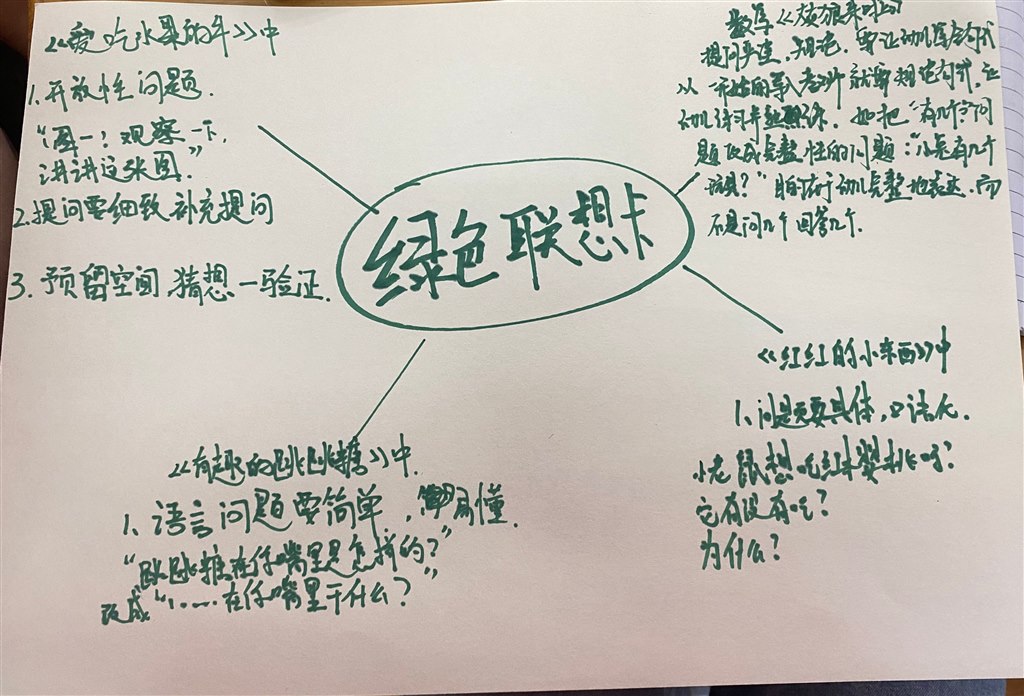 《爱吃水果的牛》中
1. 开放性问题.
“图一：观察一下,
讲讲这张图.”
2. 提问要细致 补充提问
3. 预留空间, 猜想—验证.
绿色联想卡
数学《灰狼来时》
提问严谨, 规范, 要让幼儿写句式
从一开始的导入老师就要规范句式, 让
幼儿练习并熟悉. 如把“有几个?”问
题改成完整性的问题：“小兔有几个
玩具？” 助于幼儿完整地表述, 而
不是问几个回答几个.
《有趣的跳跳糖》中.
1. 语言问题要简单, 易懂.
“跳跳糖在你嘴里是怎样的？”
改成“……在你嘴里干什么？”
《红红的小东西》中
1. 问题要具体, 口语化.
小老鼠想吃红樱桃吗？
它有没有吃？
为什么？